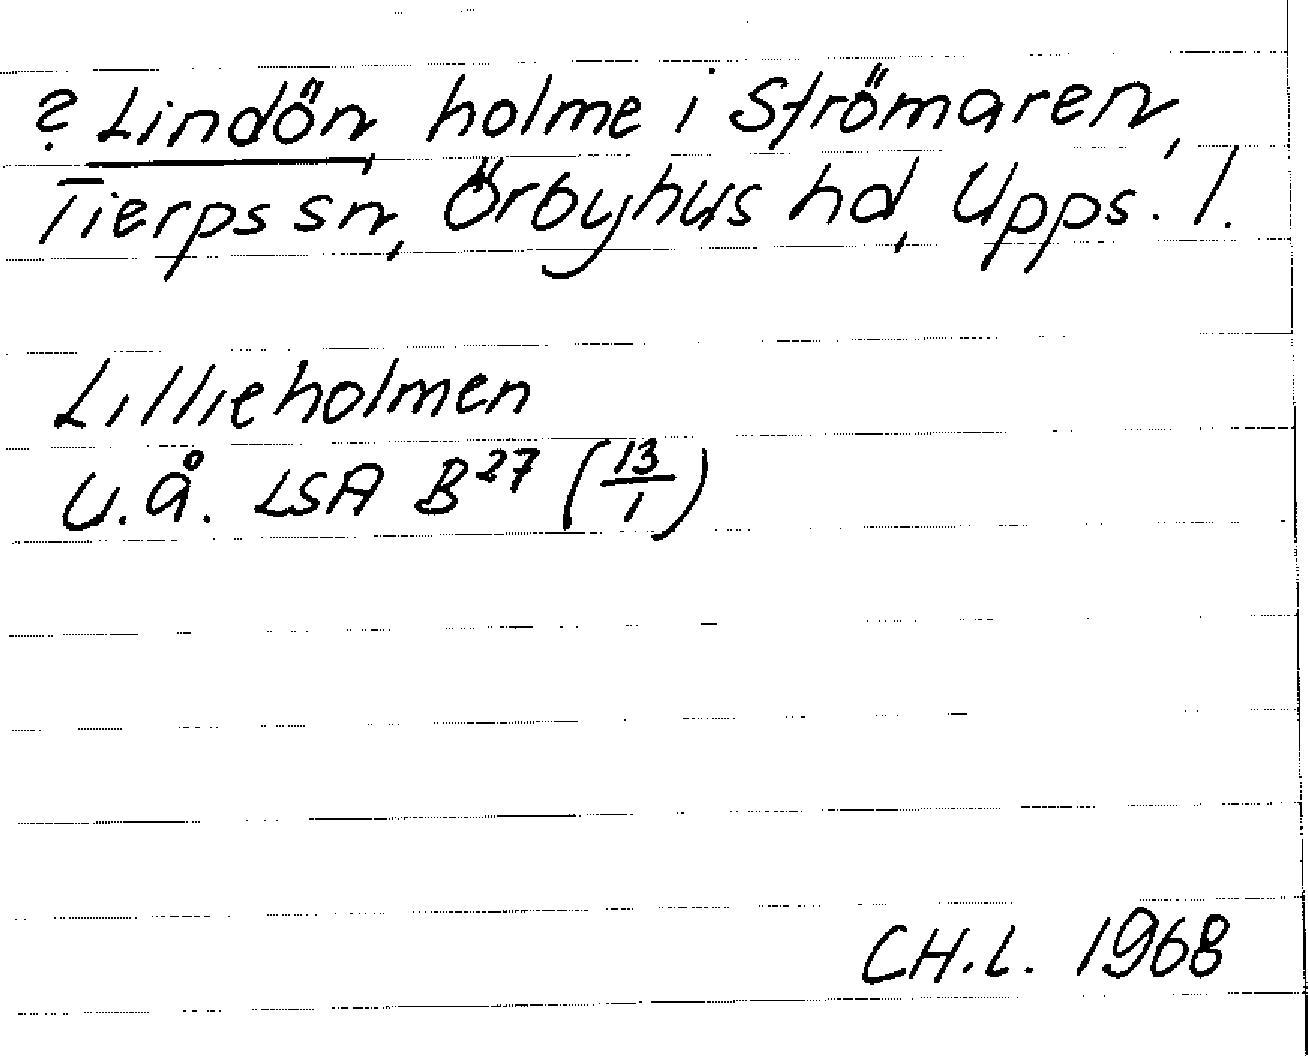 ? Lindön, holme i Strömaren,
Tierps sn, Örbyhus hd, Upps. l.
Lillieholmen
U.å. LSA B27 (13/1)
CH.L. 1968